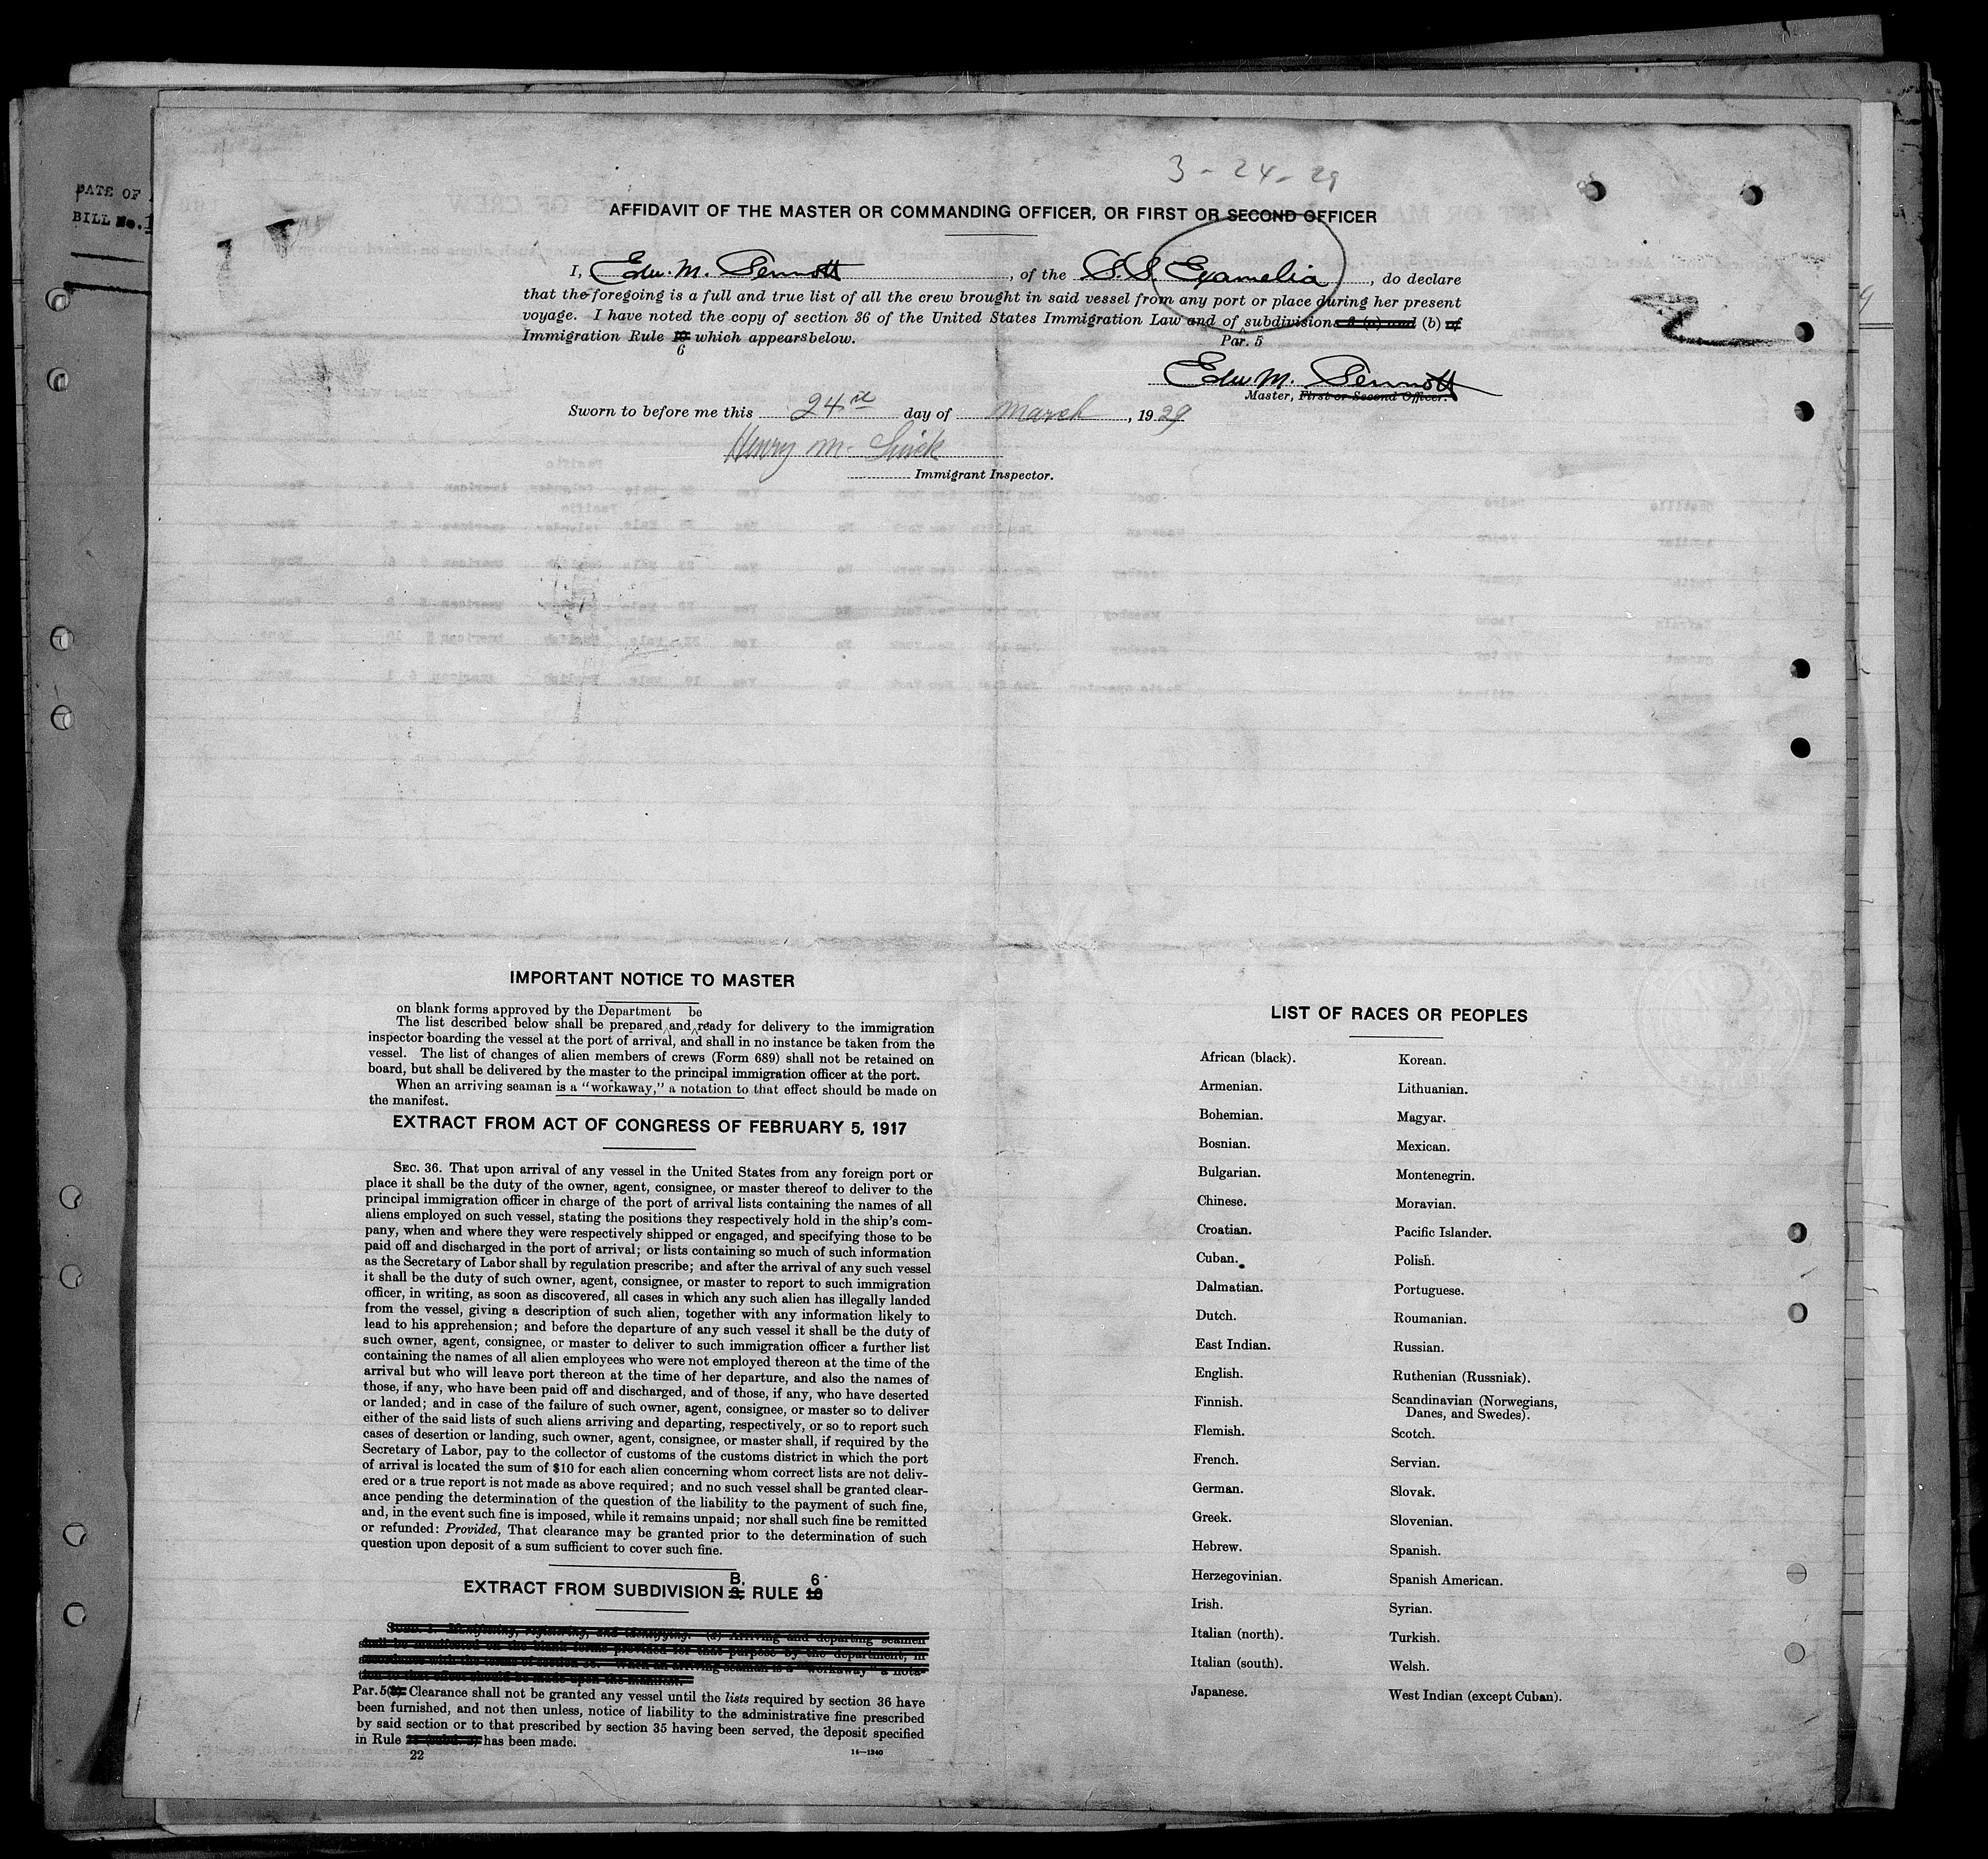 3-24-29
DATE OF
BILL No. 1
AFFIDAVIT OF THE MASTER OR COMMANDING OFFICER, OR FIRST OR SECOND OFFICER
I, Edw. M. Sennott, of the S.S. Examelia, do declare
that the foregoing is a full and true list of all the crew brought in said vessel from any port or place during her present
voyage. I have noted the copy of section 36 of the United States Immigration Law and of subdivisions (b) of
Par. 5
Immigration Rule 10 which appears below.
6
Edw M. Sennott
Master, First or Second Officer.
Sworn to before me this 24 day of March, 1929
Henry M.
Immigrant Inspector.
IMPORTANT NOTICE TO MASTER
on blank forms approved by the Department be
The list described below shall be prepared and ready for delivery to the immigration
inspector boarding the vessel at the port of arrival, and shall in no instance be taken from the
vessel. The list of changes of alien members of crews (Form 689) shall not be retained on
board, but shall be delivered by the master to the principal immigration officer at the port.
When an arriving seaman is a "workaway," a notation to that effect should be made on
the manifest.
EXTRACT FROM ACT OF CONGRESS OF FEBRUARY 5, 1917
SEC. 36. That upon arrival of any vessel in the United States from any foreign port or
place it shall be the duty of the owner, agent, consignee, or master thereof to deliver to the
principal immigration officer in charge of the port of arrival lists containing the names of all
aliens employed on such vessel, stating the positions they respectively hold in the ship's com-
pany, when and where they were respectively shipped or engaged, and specifying those to be
paid off and discharged in the port of arrival; or lists containing so much of such information
as the Secretary of Labor shall by regulation prescribe; and after the arrival of any such vessel
it shall be the duty of such owner, agent, consignee, or master to report to such immigration
officer, in writing, as soon as discovered, all cases in which any such alien has illegally landed
from the vessel, giving a description of such alien, together with any information likely to
lead to his apprehension; and before the departure of any such vessel it shall be the duty of
such owner, agent, consignee, or master to deliver to such immigration officer a further list
containing the names of all alien employees who were not employed thereon at the time of the
arrival but who will leave port thereon at the time of her departure, and also the names of
those, if any, who have been paid off and discharged, and of those, if any, who have deserted
or landed; and in case of the failure of such owner, agent, consignee, or master so to deliver
either of the said lists of such aliens arriving and departing, respectively, or so to report such
cases of desertion or landing, such owner, agent, consignee, or master shall, if required by the
Secretary of Labor, pay to the collector of customs of the customs district in which the port
of arrival is located the sum of $10 for each alien concerning whom correct lists are not deliv-
ered or a true report is not made as above required; and no such vessel shall be granted clear-
ance pending the determination of the question of the liability to the payment of such fine,
and, in the event such fine is imposed, while it remains unpaid; nor shall such fine be remitted
or refunded: Provided, That clearance may be granted prior to the determination of such
question upon deposit of a sum sufficient to cover such fine.
B. 6
EXTRACT FROM SUBDIVISION RULE 10
SUBD. 1. Manifesting, registering, and identifying. (a) Arriving and departing seamen
shall be manifested on the blank forms provided for that purpose by the department, in
accordance with the terms of section 36. When an arriving seaman is a "workaway" a nota-
tion to that effect should be made upon the manifest.
Par. 5 Clearance shall not be granted any vessel until the lists required by section 36 have
been furnished, and not then unless, notice of liability to the administrative fine prescribed
by said section or to that prescribed by section 35 having been served, the deposit specified
in Rule has been made.
22
14—1240
LIST OF RACES OR PEOPLES
African (black).
Armenian.
Bohemian.
Bosnian.
Bulgarian.
Chinese.
Croatian.
Cuban.
Dalmatian.
Dutch.
East Indian.
English.
Finnish.
Flemish.
French.
German.
Greek.
Hebrew.
Herzegovinian.
Irish.
Italian (north).
Italian (south).
Japanese.
Korean.
Lithuanian.
Magyar.
Mexican.
Montenegrin.
Moravian.
Pacific Islander.
Polish.
Portuguese.
Roumanian.
Russian.
Ruthenian (Russniak).
Scandinavian (Norwegians,
Danes, and Swedes).
Scotch.
Servian.
Slovak.
Slovenian.
Spanish.
Spanish American.
Syrian.
Turkish.
Welsh.
West Indian (except Cuban).